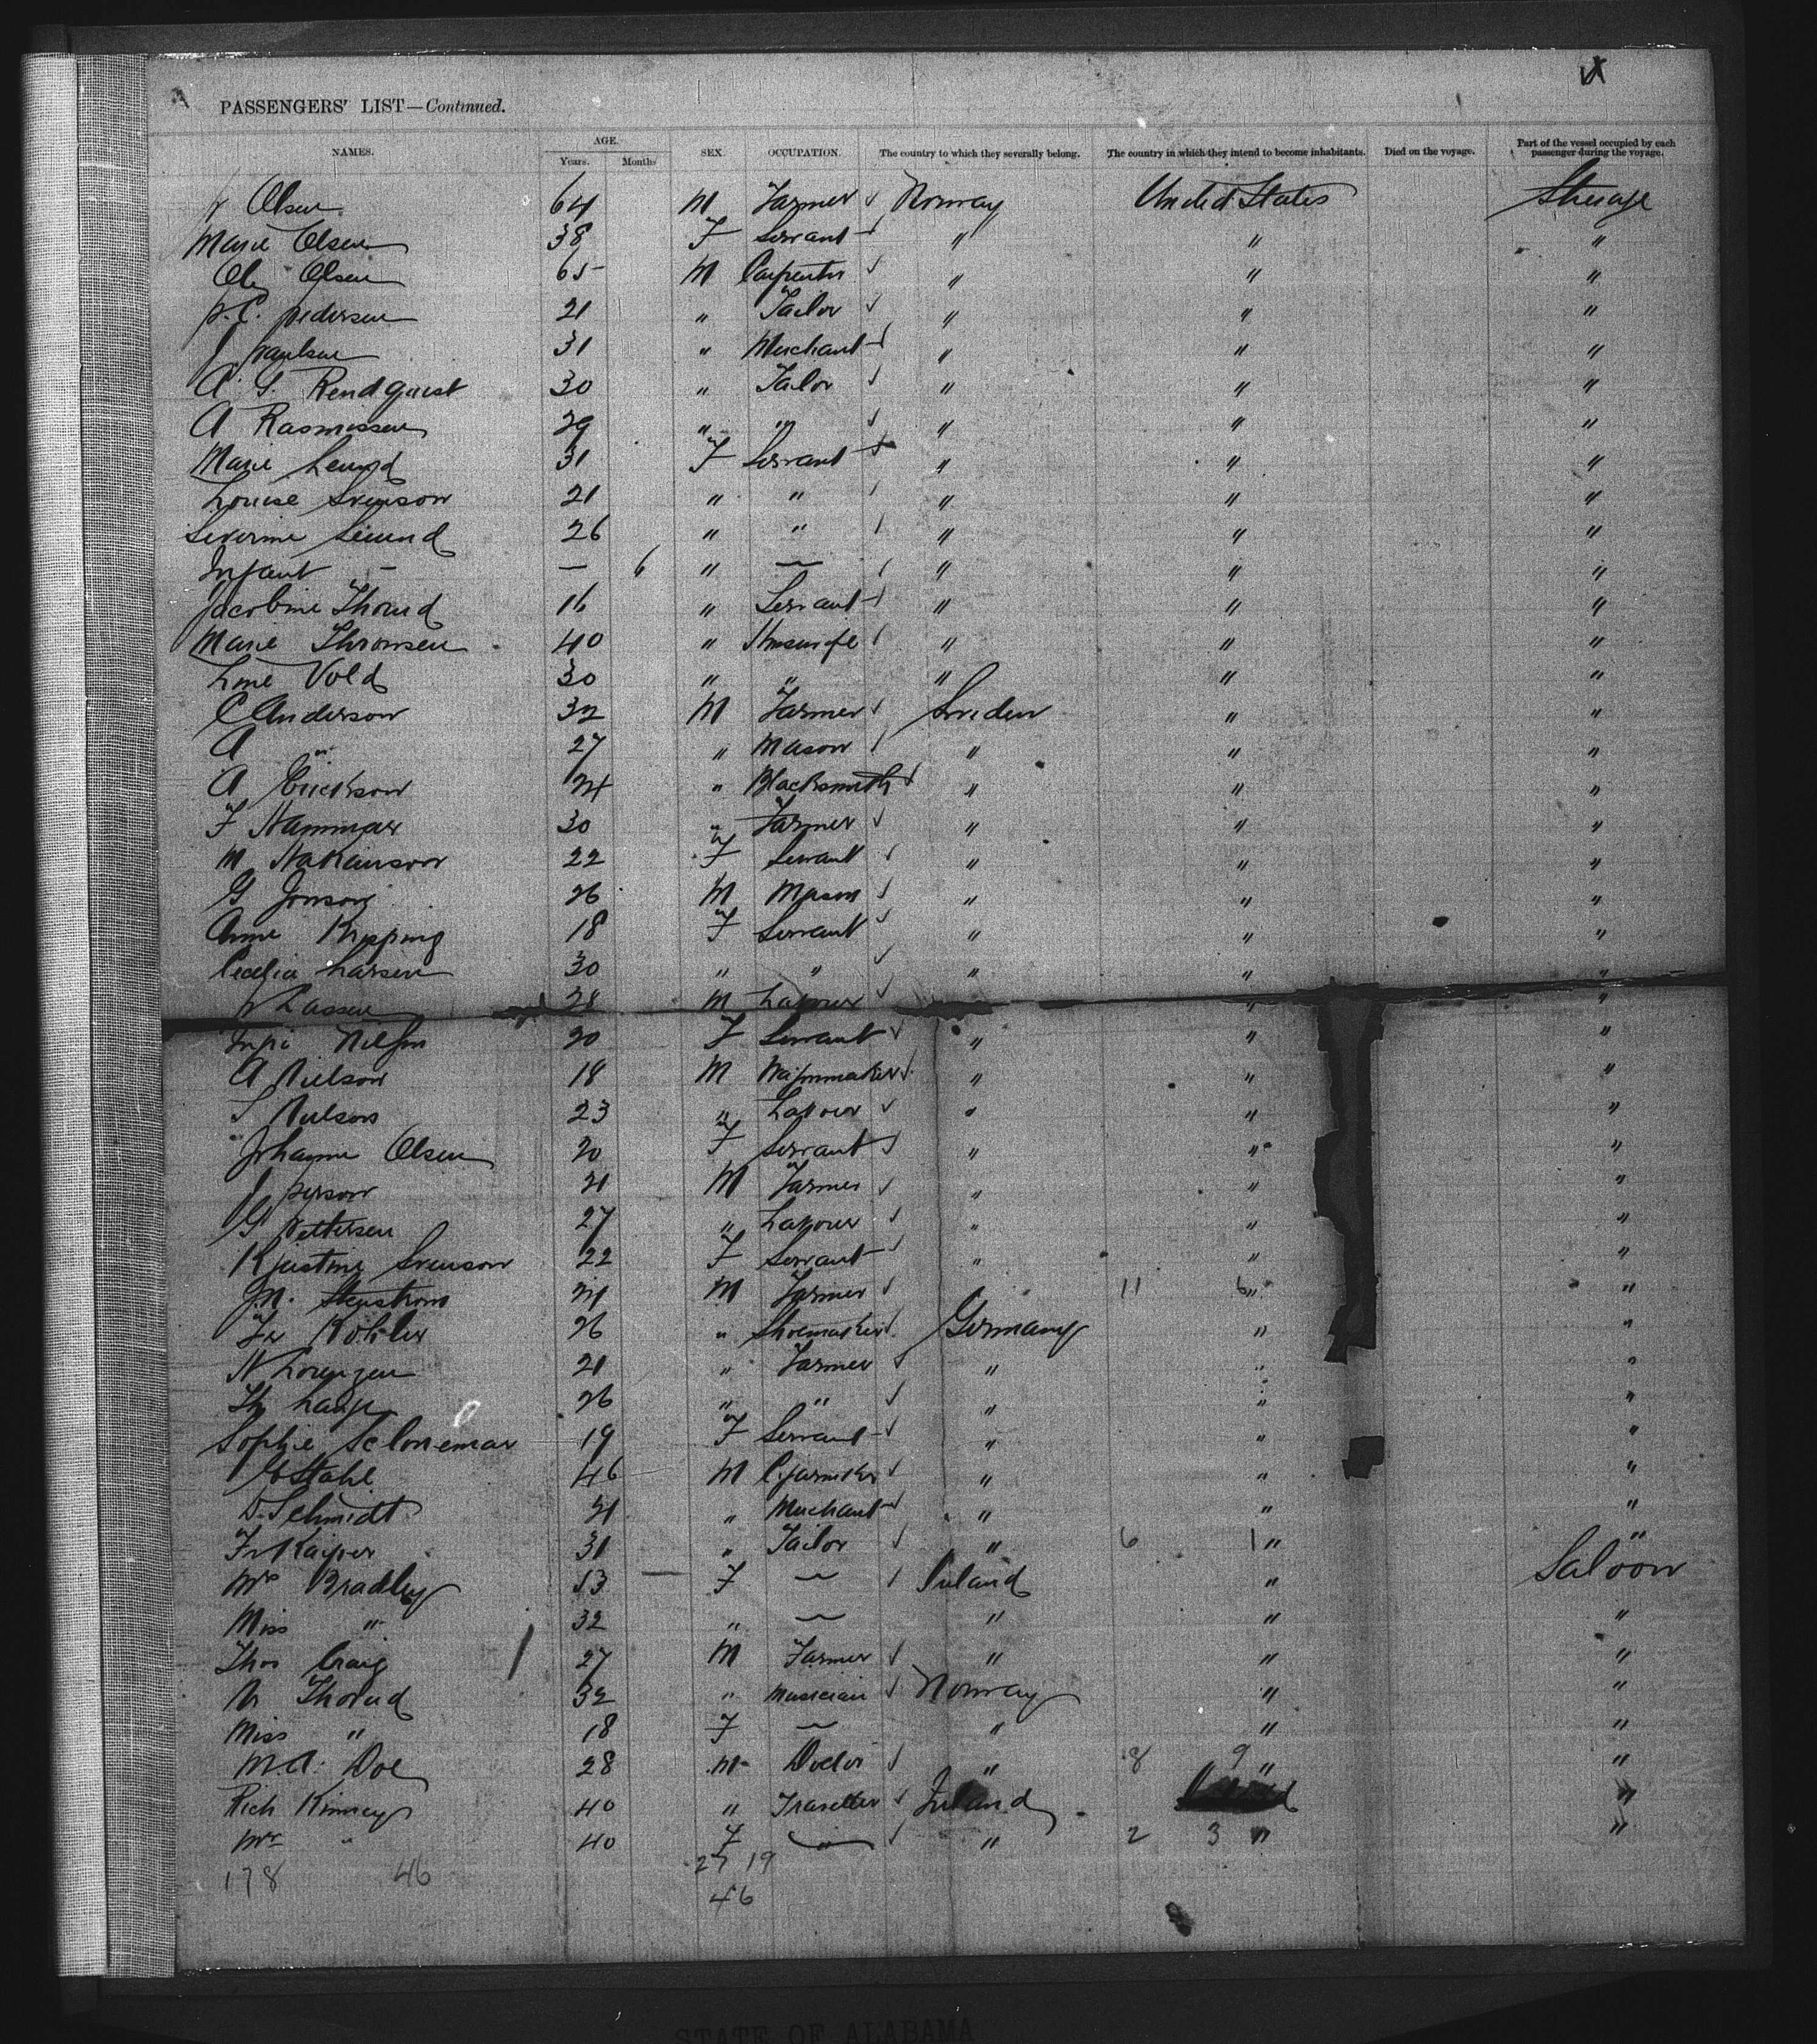 PASSENGERS' LIST—Continued.
NAMES. AGE. SEX. OCCUPATION. The country to which they severally belong. The country in which they intend to become inhabitants. Died on the voyage. Part of the vessel occupied by each passenger during the voyage.
Years. Months
Olsen 64 M Farmer ✓ Norway United States Steerage
Marie Olsen 38 F Servant ✓ " " "
Ole Olsen 65 M Carpenter ✓ " " "
P. C. Pedersen 21 " Tailor ✓ " " "
J Paulsen 31 " Merchant ✓ " " "
A. S. Rendquist 30 " Tailor ✓ " " "
A Rasmissen 29 " " ✓ " " "
Marie 31 F Servant ✓ " " "
Louise Svenson 21 " " ✓ " " "
Severine 26 " " ✓ " " "
Infant — — 6 " — ✓ " " "
Jacobine Thorud 16 " Servant ✓ " " "
Marie Thronsen 40 " Housewife ✓ " " "
Line Vold 30 " " " " "
C Anderson 32 M Farmer ✓ Sweden " "
A " 27 " Mason ✓ " " "
A Erickson 24 " Blacksmith ✓ " " "
F Hammar 30 " Farmer ✓ " " "
M Hakanson 22 F Servant ✓ " " "
G Jonson 26 M Mason ✓ " " "
Anne 18 F Servant ✓ " " "
Cecilia Larsen 30 " " ✓ " " "
Lassen 28 M Labourer ✓ " "
20 F Servant ✓ " " "
A Nielson 18 M Wagonmaker ✓ " " "
S Nielson 23 " Labourer ✓ " " "
Johanne Olsen 20 F Servant ✓ " " "
J Person 21 M Farmer ✓ " " "
G Pettersen 27 " Labourer ✓ " " "
Kjustine Svenson 22 F Servant ✓ " " "
J.N. Stenstrom 21 M Farmer ✓ 11 6 " "
Fr Köhler 26 " Shoemaker ✓ Germany " "
N Lorenzen 21 " Farmer ✓ " " "
Th 26 " " ✓ " " "
Sophie 19 F Servant ✓ " " "
G Stahl 46 M Cigarmaker ✓ " " "
D. Schmidt 21 " Merchant ✓ " " "
Fr Kaiser 31 " Tailor ✓ " 6 1 " "
Mrs Bradley 53 — F — ✓ Ireland " Saloon
Miss " 32 " — " " "
Thos Craig 27 M Farmer ✓ " " "
Thorud 32 " Musician ✓ Norway " "
Miss " 18 F — " " "
M.A. Doe 28 M Doctor ✓ " 8 9 " "
Rich Kinney 40 " Traveller ✓ Ireland "
Mrs " 40 F " ✓ " 2 3 " "
178 46 27 19
46
STATE OF ALABAMA